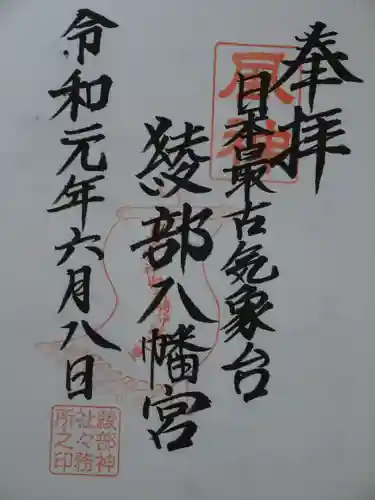 奉拝
風神
日本最古気象台
綾部八幡宮
令和元年六月八日
綾部神
社々務
所之印